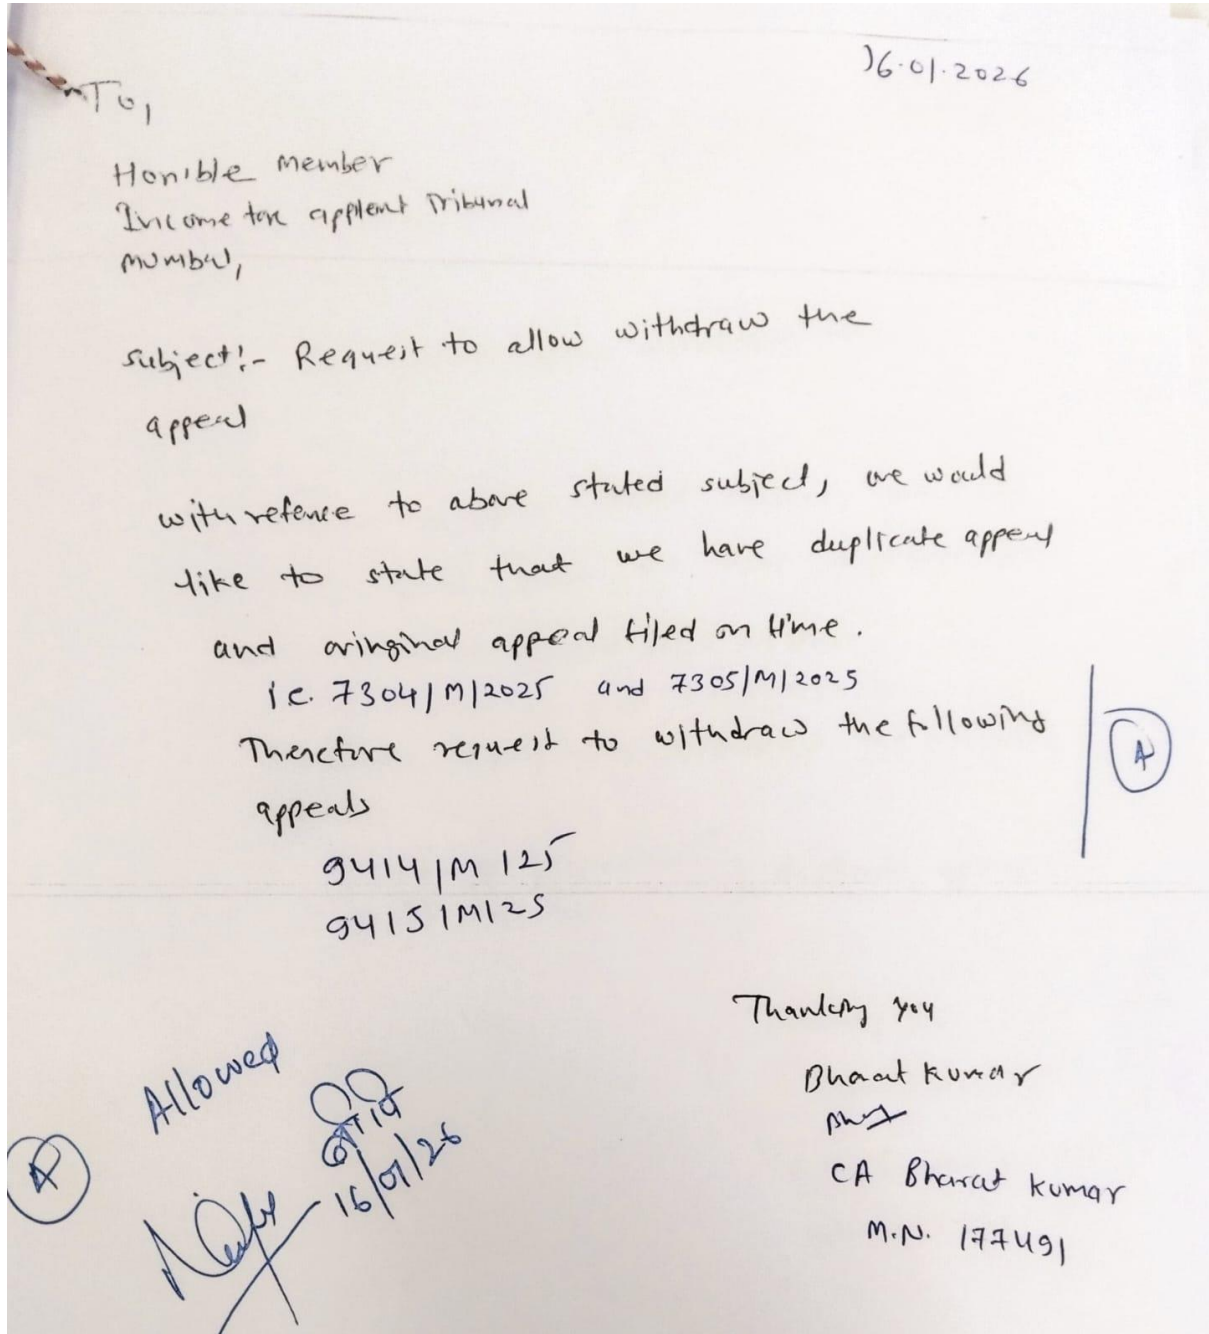 16.01.2026
To,
Honible member
Income tax applent Tribunal
Mumbai,
Subject:- Request to allow withdraw the
appeal
with refence to above stated subject, we would
like to state that we have duplicate appeal
and oringinal appeal filed on time.
i.e. 7304/M/2025 and 7305/M/2025
Therefore request to withdraw the following
appeals
9414/M/25
9415/M/25
A
Thanking you
Bharat Kumar
CA Bharat Kumar
M.N. 177491
Allowed
16/01/26
A